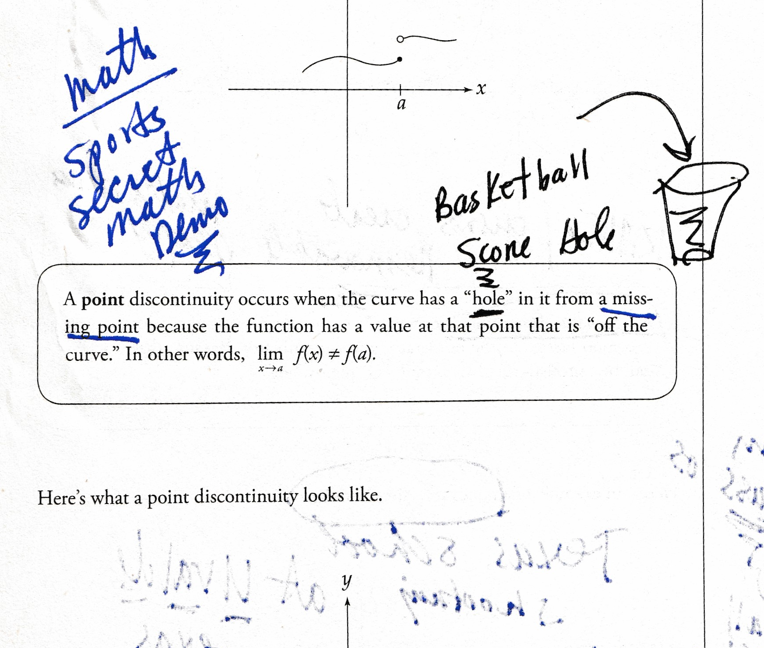 math
Sports
secret
math
Demo
x
a
Basketball
Score Hole
A point discontinuity occurs when the curve has a “hole” in it from a miss-
ing point because the function has a value at that point that is “off the
curve.” In other words, lim f(x) ≠ f(a).
x→a
Here’s what a point discontinuity looks like.
Texas school
shooting at Uvalde
y